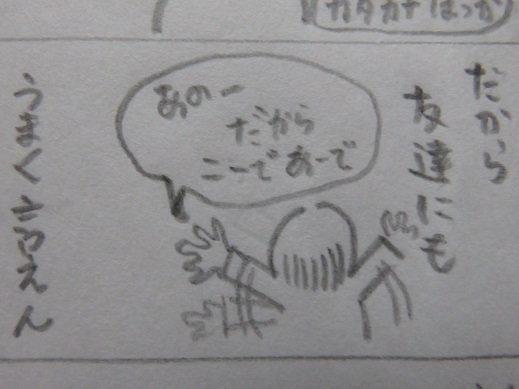 カタカナばっか
だから
友達にも
あのー
だから
こーであーで
うまく言えん